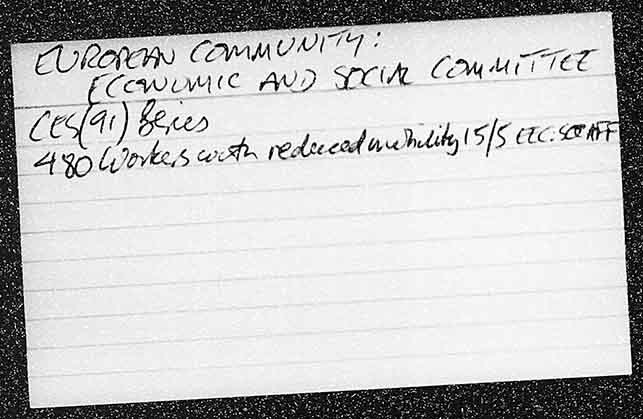 EUROPEAN COMMUNITY:
ECONOMIC AND SOCIAL COMMITTEE
CES(91) Series
480 Workers with reduced mobility 15/5 EEC. SOC AFF